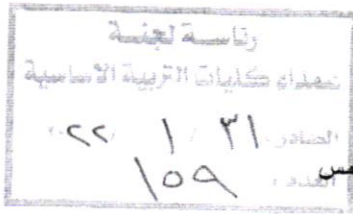 رئاسة لجنة
عمداء كليات التربية الاساسية
الصادر: ٣١ / ١ / ٢٠٢٢
العدد: ١٥٩
مس